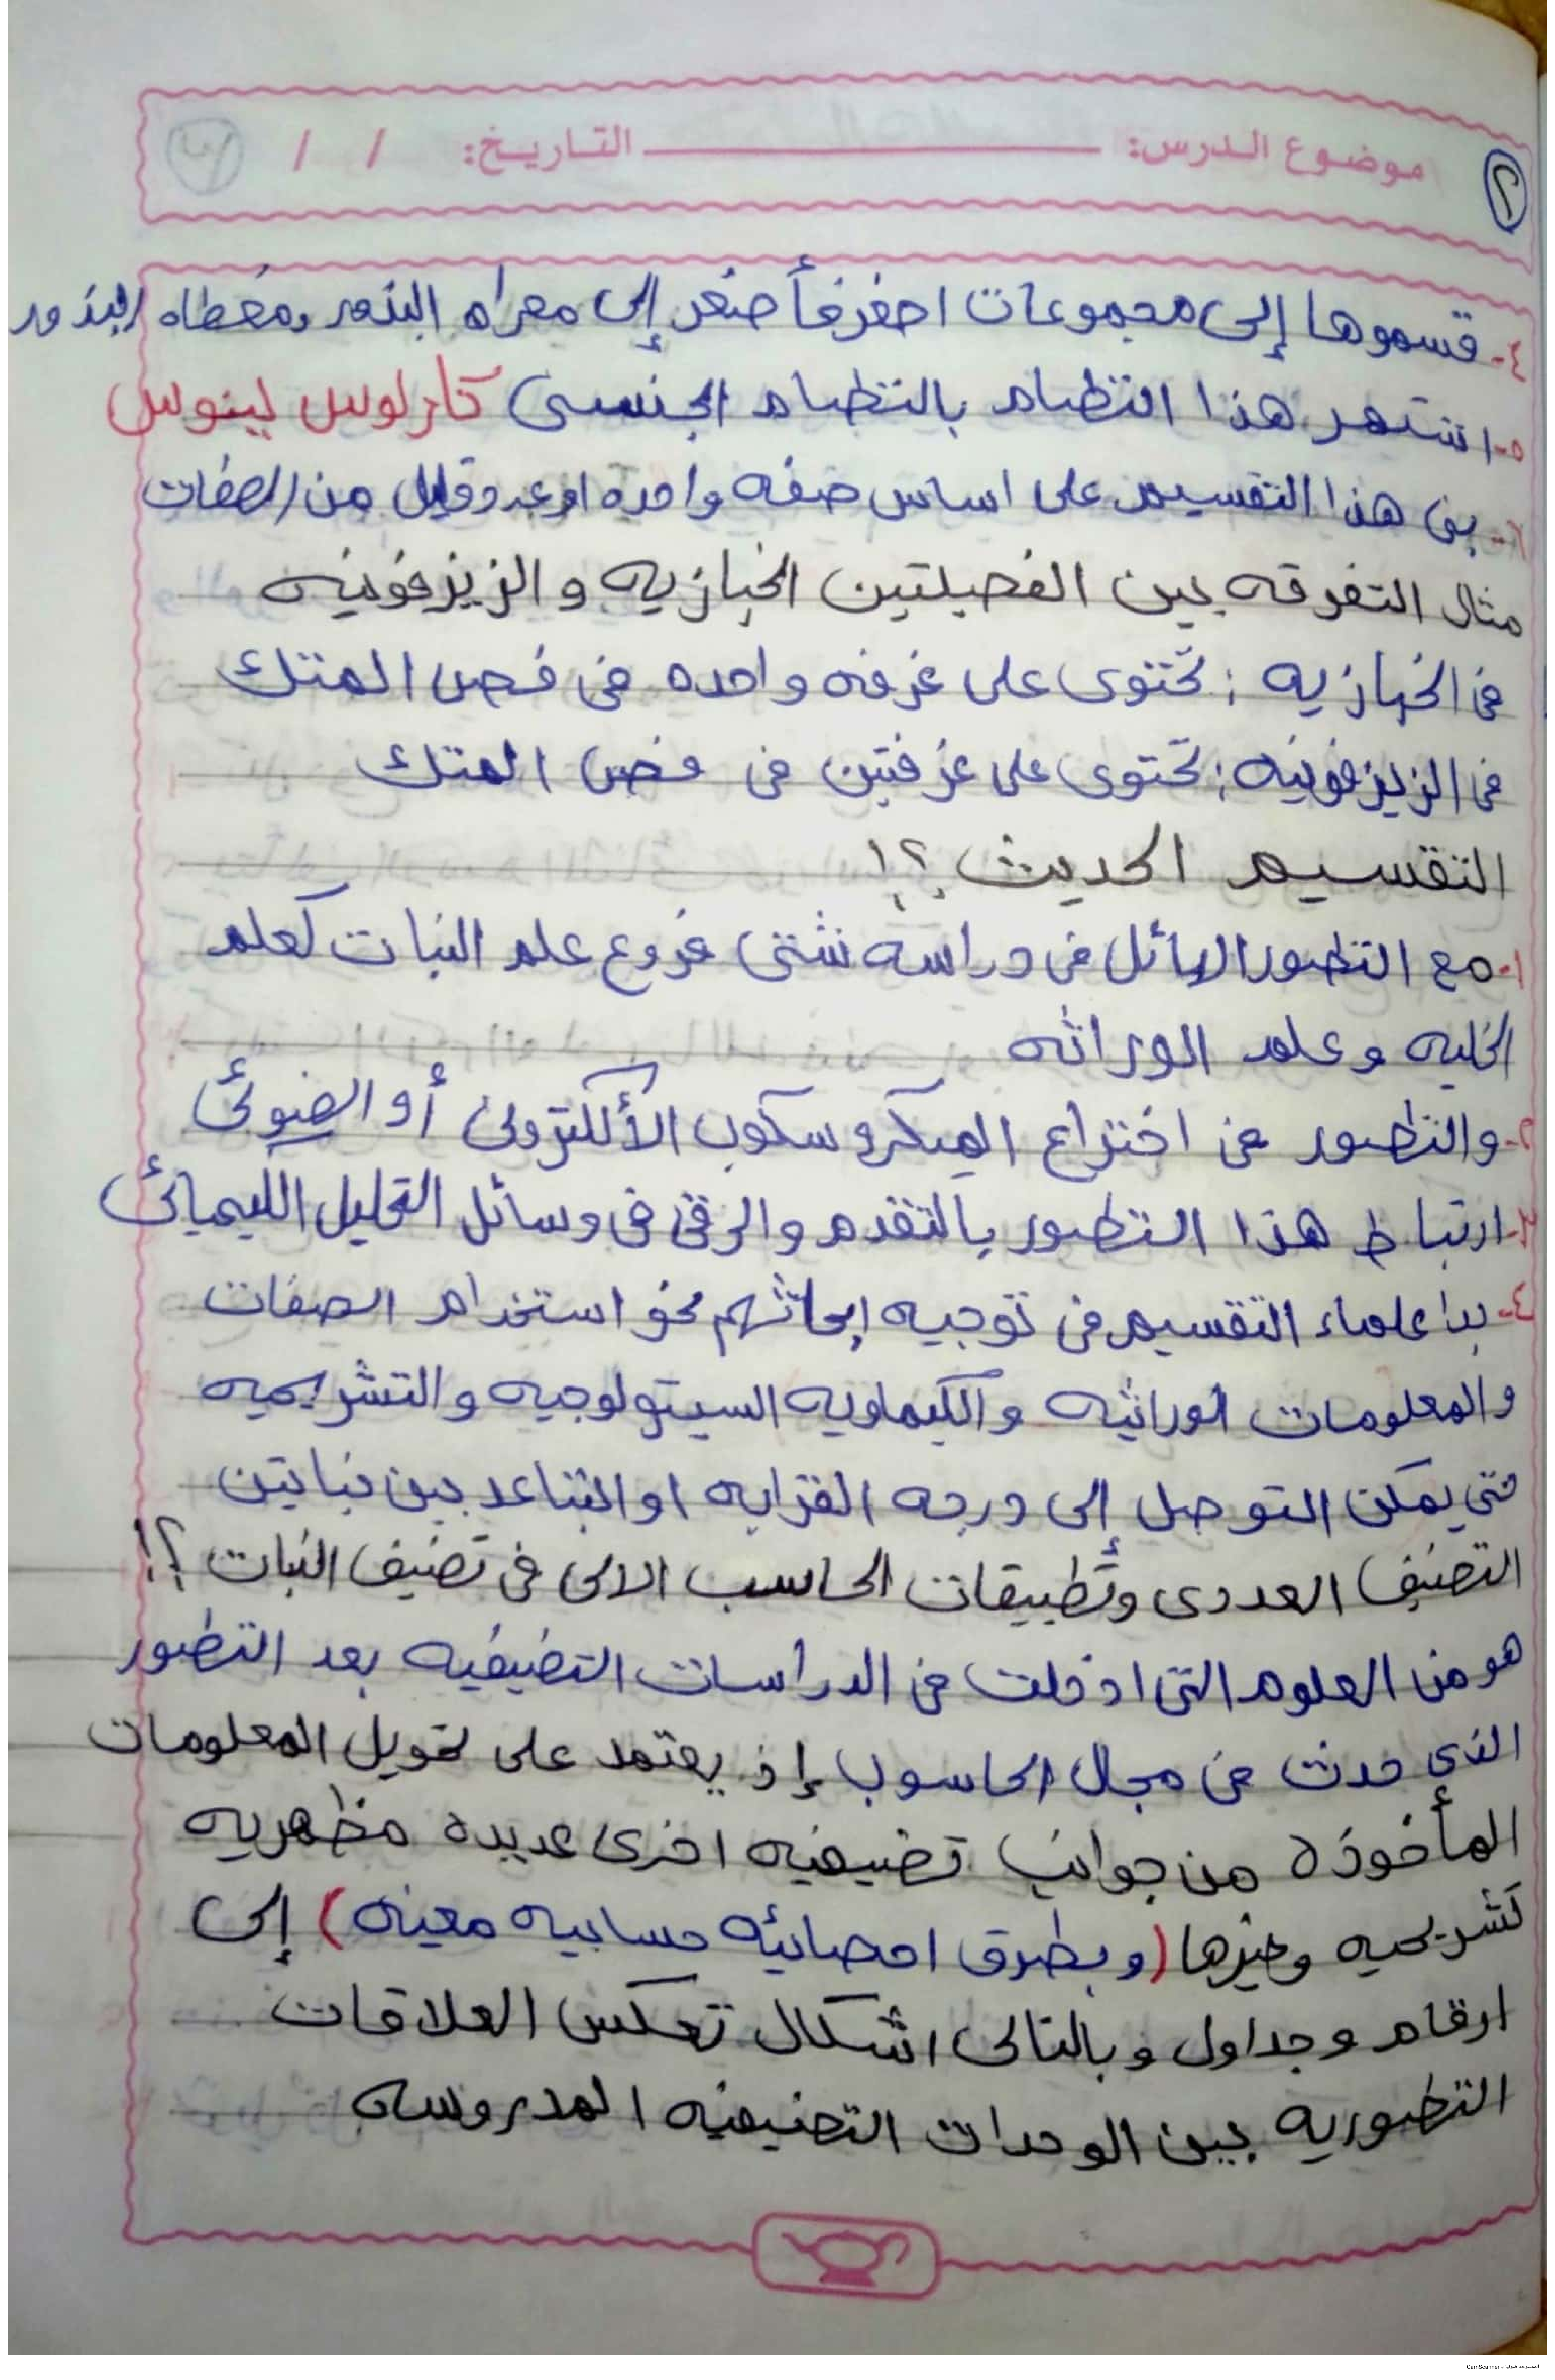 موضوع الدرس: التاريخ: / /
٢
٤- قسموها إلى مجموعات اصغر فأصغر إلى معراه البذور ومغطاه البذور
٥- اشتهر هذا النظام بالنظام الجنسى كارلوس لينوس
٦- بنى هذا التقسيم على اساس صفه واحده او عدد قليل من الصفات
مثال التفرقه بين الفصيلتين الخبازيه و الزيزفونيه
فى الخبازيه : تحتوى على غرفه واحده فى فص المتك
فى الزيزفونيه : تحتوى على غرفتين فى فص المتك
التقسيم الحديث ؟!
١- مع التطور الهائل فى دراسه شتى فروع علم النبات كعلم
الخليه و علم الوراثه
٢- والتطور فى اختراع الميكروسكوب الألكترونى أو الضوئى
٣- ارتباط هذا التطور بالتقدم والرقى فى وسائل التحليل الكيميائى
٤- بدا علماء التقسيم فى توجيه ابحاثهم نحو استخدام الصفات
والمعلومات الوراثيه والكيماويه السيتولوجيه والتشريحيه
حتى يمكن التوصل إلى درجه القرابه او التباعد بين نباتين
التصنيف العددى وتطبيقات الحاسب الالى فى تصنيف النبات ؟!
هو من العلوم التى ادخلت فى الدراسات التصنيفيه بعد التطور
الذى حدث فى مجال الحاسوب إذ يعتمد على تحويل المعلومات
المأخوذة من جوانب تصنيفيه اخرى عديده مظهريه
تشريحيه وغيرها (و بطرق احصائيه حسابيه معينه) إلى
ارقام وجداول وبالتالى اشكال تعكس العلاقات
التطوريه بين الوحدات التصنيفيه المدروسه
الممسوحة ضوئيا بـ CamScanner